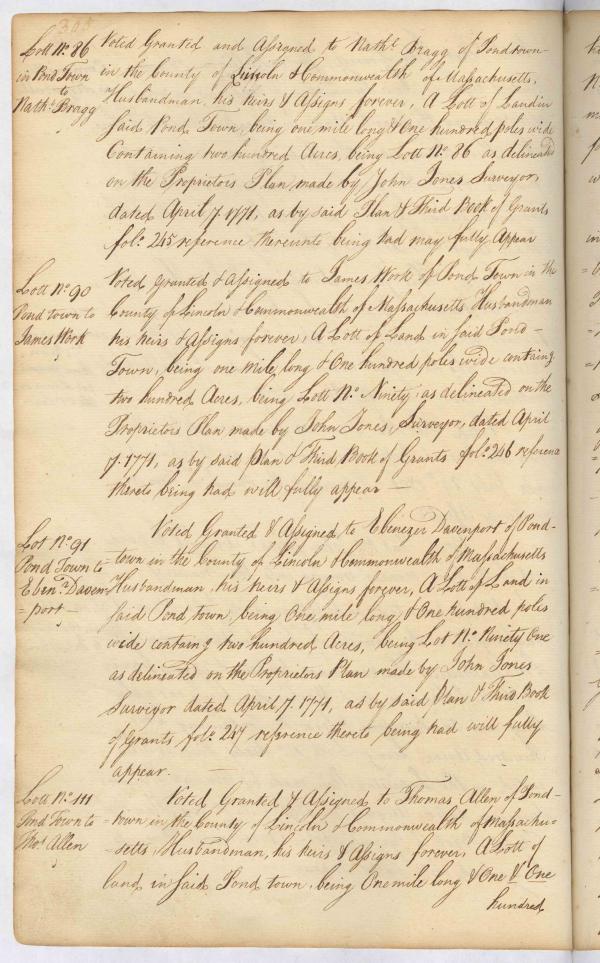 Lott No. 86
in Pond Town
to
Nathl. Bragg
Voted Granted and Assigned to Nathl. Bragg of Pondtown-
in the County of Lincoln & Commonwealth of Massachusetts,
Husbandman, his heirs & Assigns forever, A Lott of Land in
said Pond Town, being one mile long & One hundred poles wide
Containing two hundred Acres, being Lott No. 86 as delineated
on the Proprietors Plan, made by John Jones Surveyor,
dated April 7. 1771, as by said Plan & Third Book of Grants
folo. 245 reference thereunto being had may fully Appear
Lott No. 90
Pond town to
James Work
Voted granted & Assigned to James Work of Pond Town in the
County of Lincoln & Commonwealth of Massachusetts Husbandman
his heirs & Assigns forever, A Lott of Land in said Pond-
Town, being one mile, long & One hundred poles wide containg
two hundred Acres, being Lott No. Ninety, as delineated on the
Proprietors Plan made by John Jones, Surveyor, dated April
7. 1771, as by said Plan & Third Book of Grants folo. 246 reference
thereto being had will fully appear —
Lot No. 91
Pond Town to
Ebenr. Daven-
=port —
Voted Granted & Assigned, to Ebenezer Davenport of Pond-
-town in the County of Lincoln & Commonwealth of Massachusetts
Husbandman, his heirs & Assigns forever, A Lott of Land in
said Pond town, being One mile long & One hundred poles
wide containg two hundred Acres, being Lot No. Ninety One
as delineated on the Proprietors Plan made by John Jones
Surveyor dated April 7. 1771, as by said Plan & Third Book
of Grants folo. 247 reference thereto being had will fully
appear. —
Lott No. 111
Pond Town to
Thos. Allen
Voted Granted & Assigned to Thomas Allen of Pond-
-town in the County of Lincoln & Commonwealth of Massachu-
-setts, Husbandman, his heirs & Assigns forever, A Lott of
land in said Pond town, being One mile long & One & One
hundred